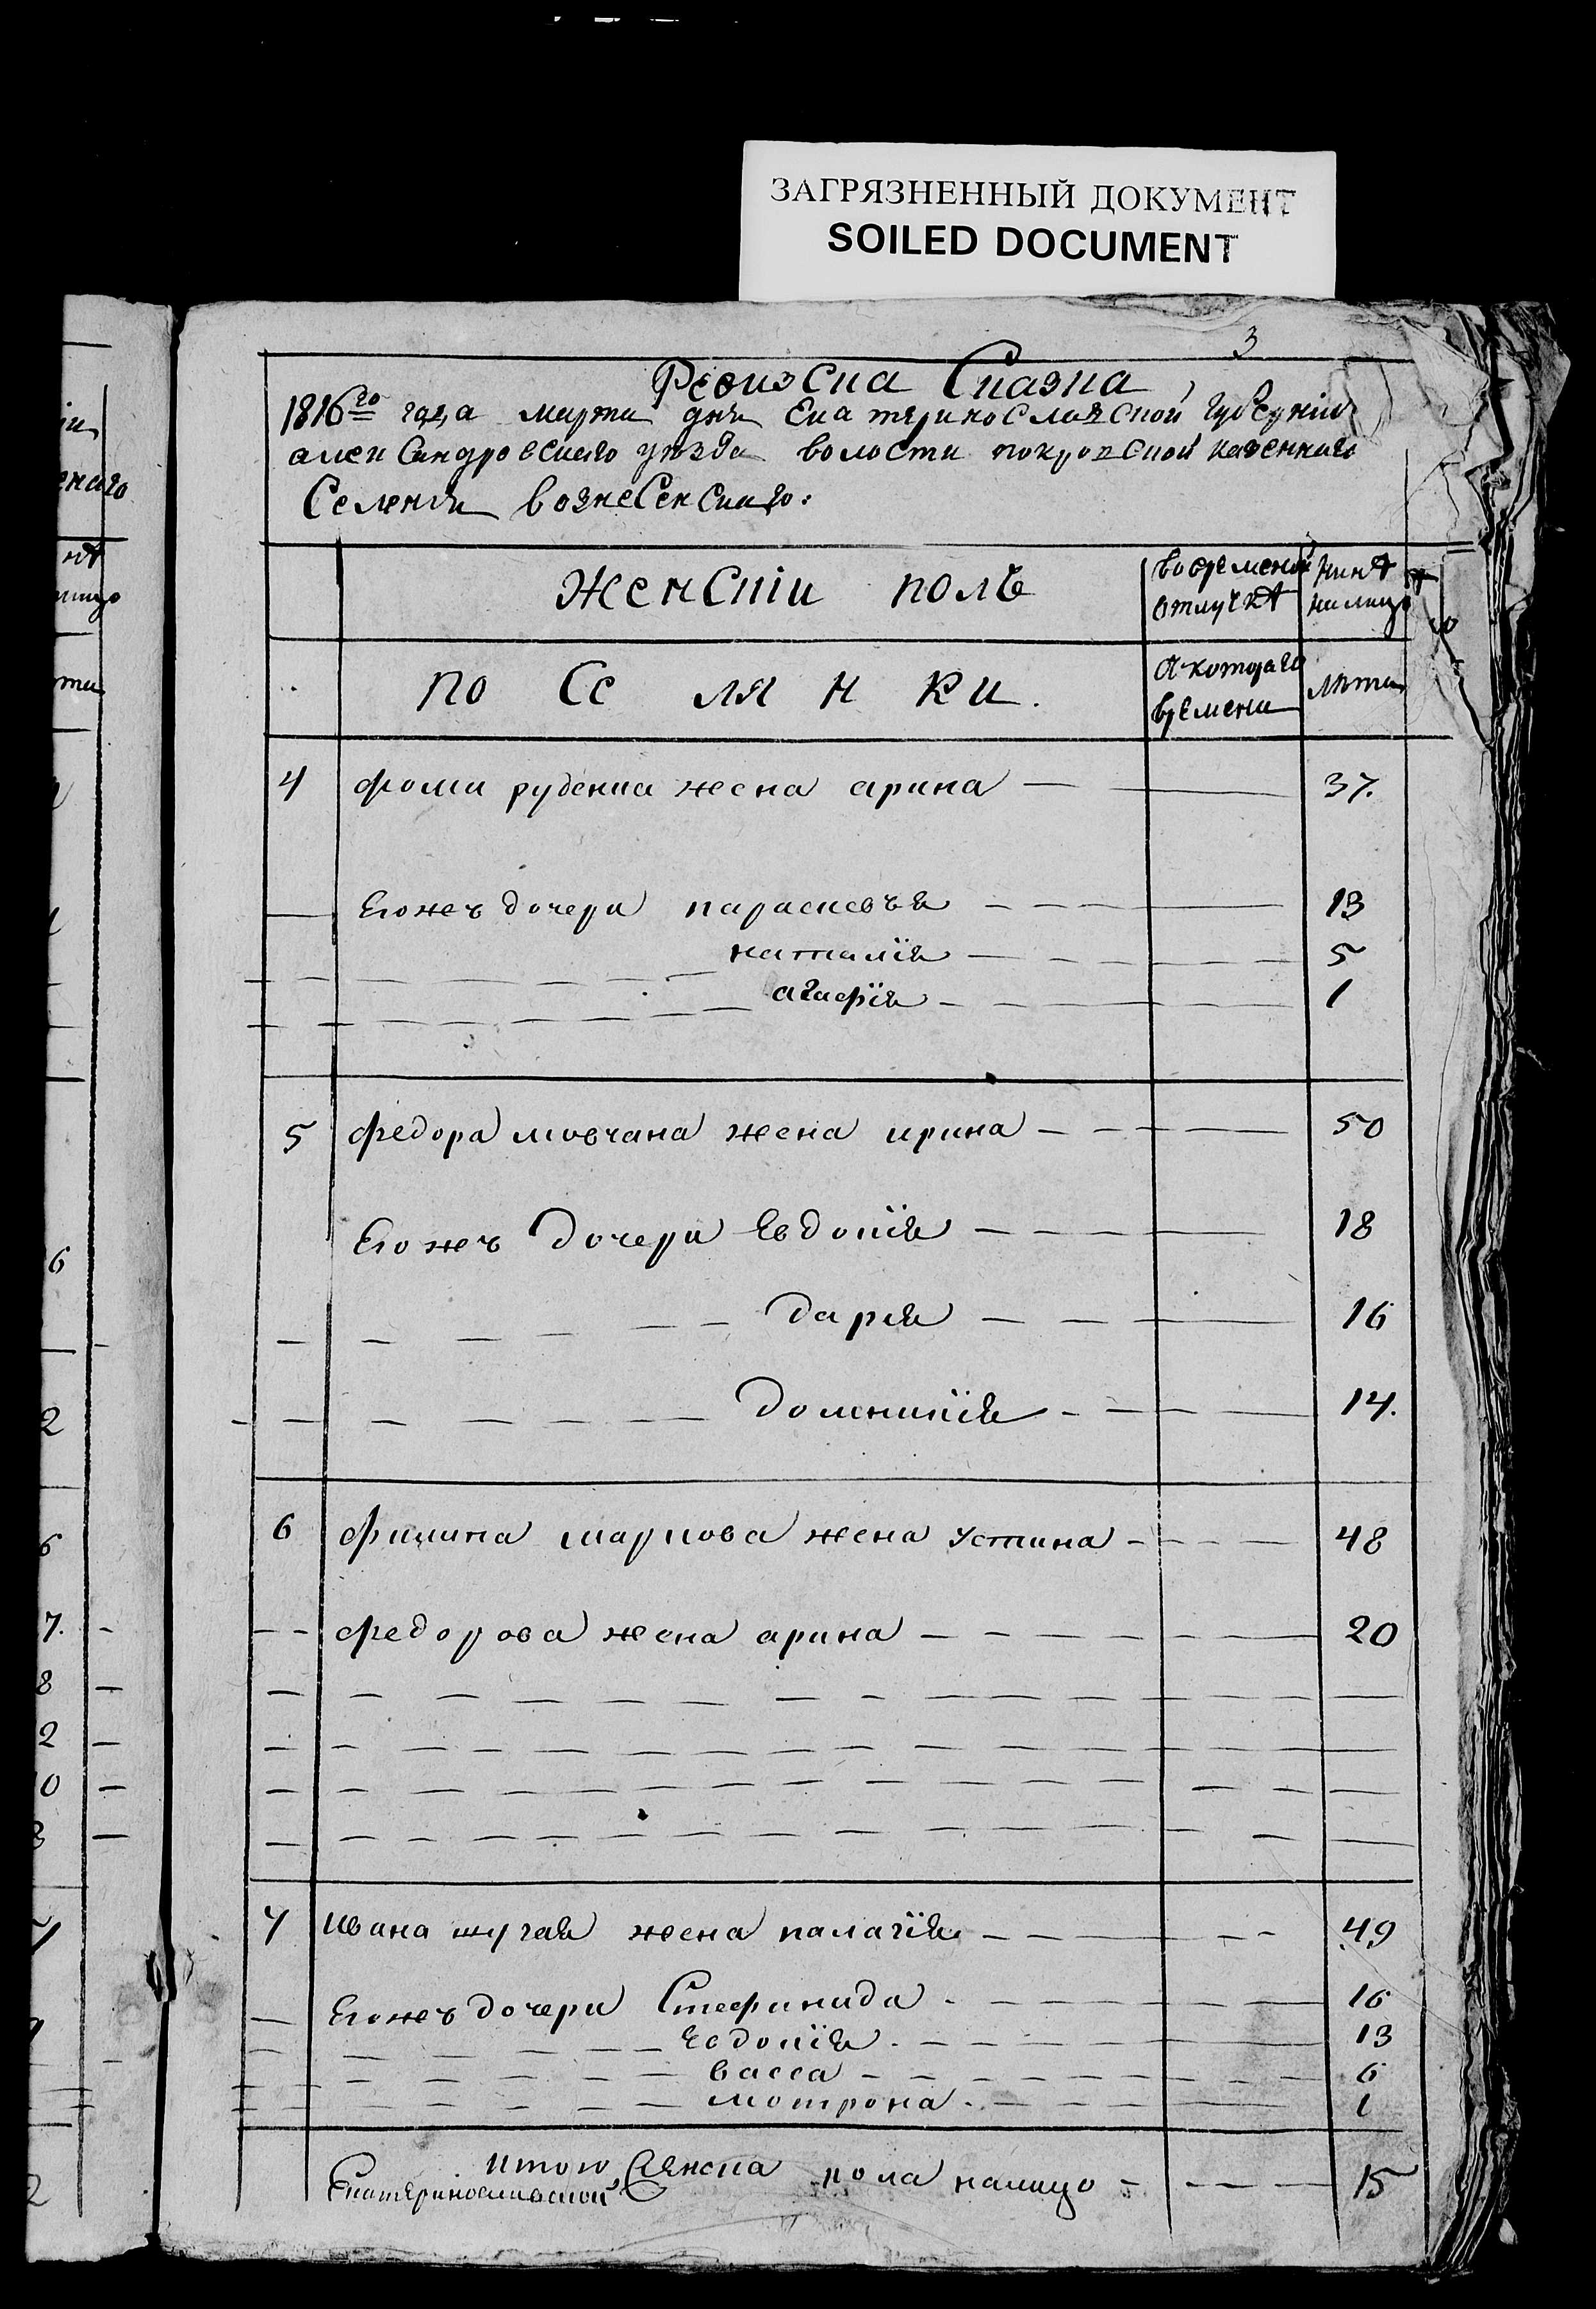 ЗАГРЯЗНЕННЫЙ ДОКУМЕНТ
SOILED DOCUMENT
3
Ревизска Сказка
1816го года марта дня Екатеринославской губернии
александровскаго уѣзда волости покровской казеннаго
Селения вознеСенскаго:
женскіи полъ
вовременой отлучкѣ
нинѣ налицо
по Се ля н ки.
с котораго времени
лѣта
4 фоми руденка жена арина — 37.
Егожъ дочери парасковъя — 13
наталія — 5
агафія — 1
5 федора мовчана жена ирина — 50
Егожъ дочери Евдокія — 18
даря — 16
домникія — 14.
6 филипа маркова жена устина — 48
федорова жена арина — 20
7 ивана шугая жена палагія — 49
Егожъ дочери Стефанида — 16
евдокія — 13
васса — 6
мотрона — 1
итого женска пола налицо — 15
Екатеринославской